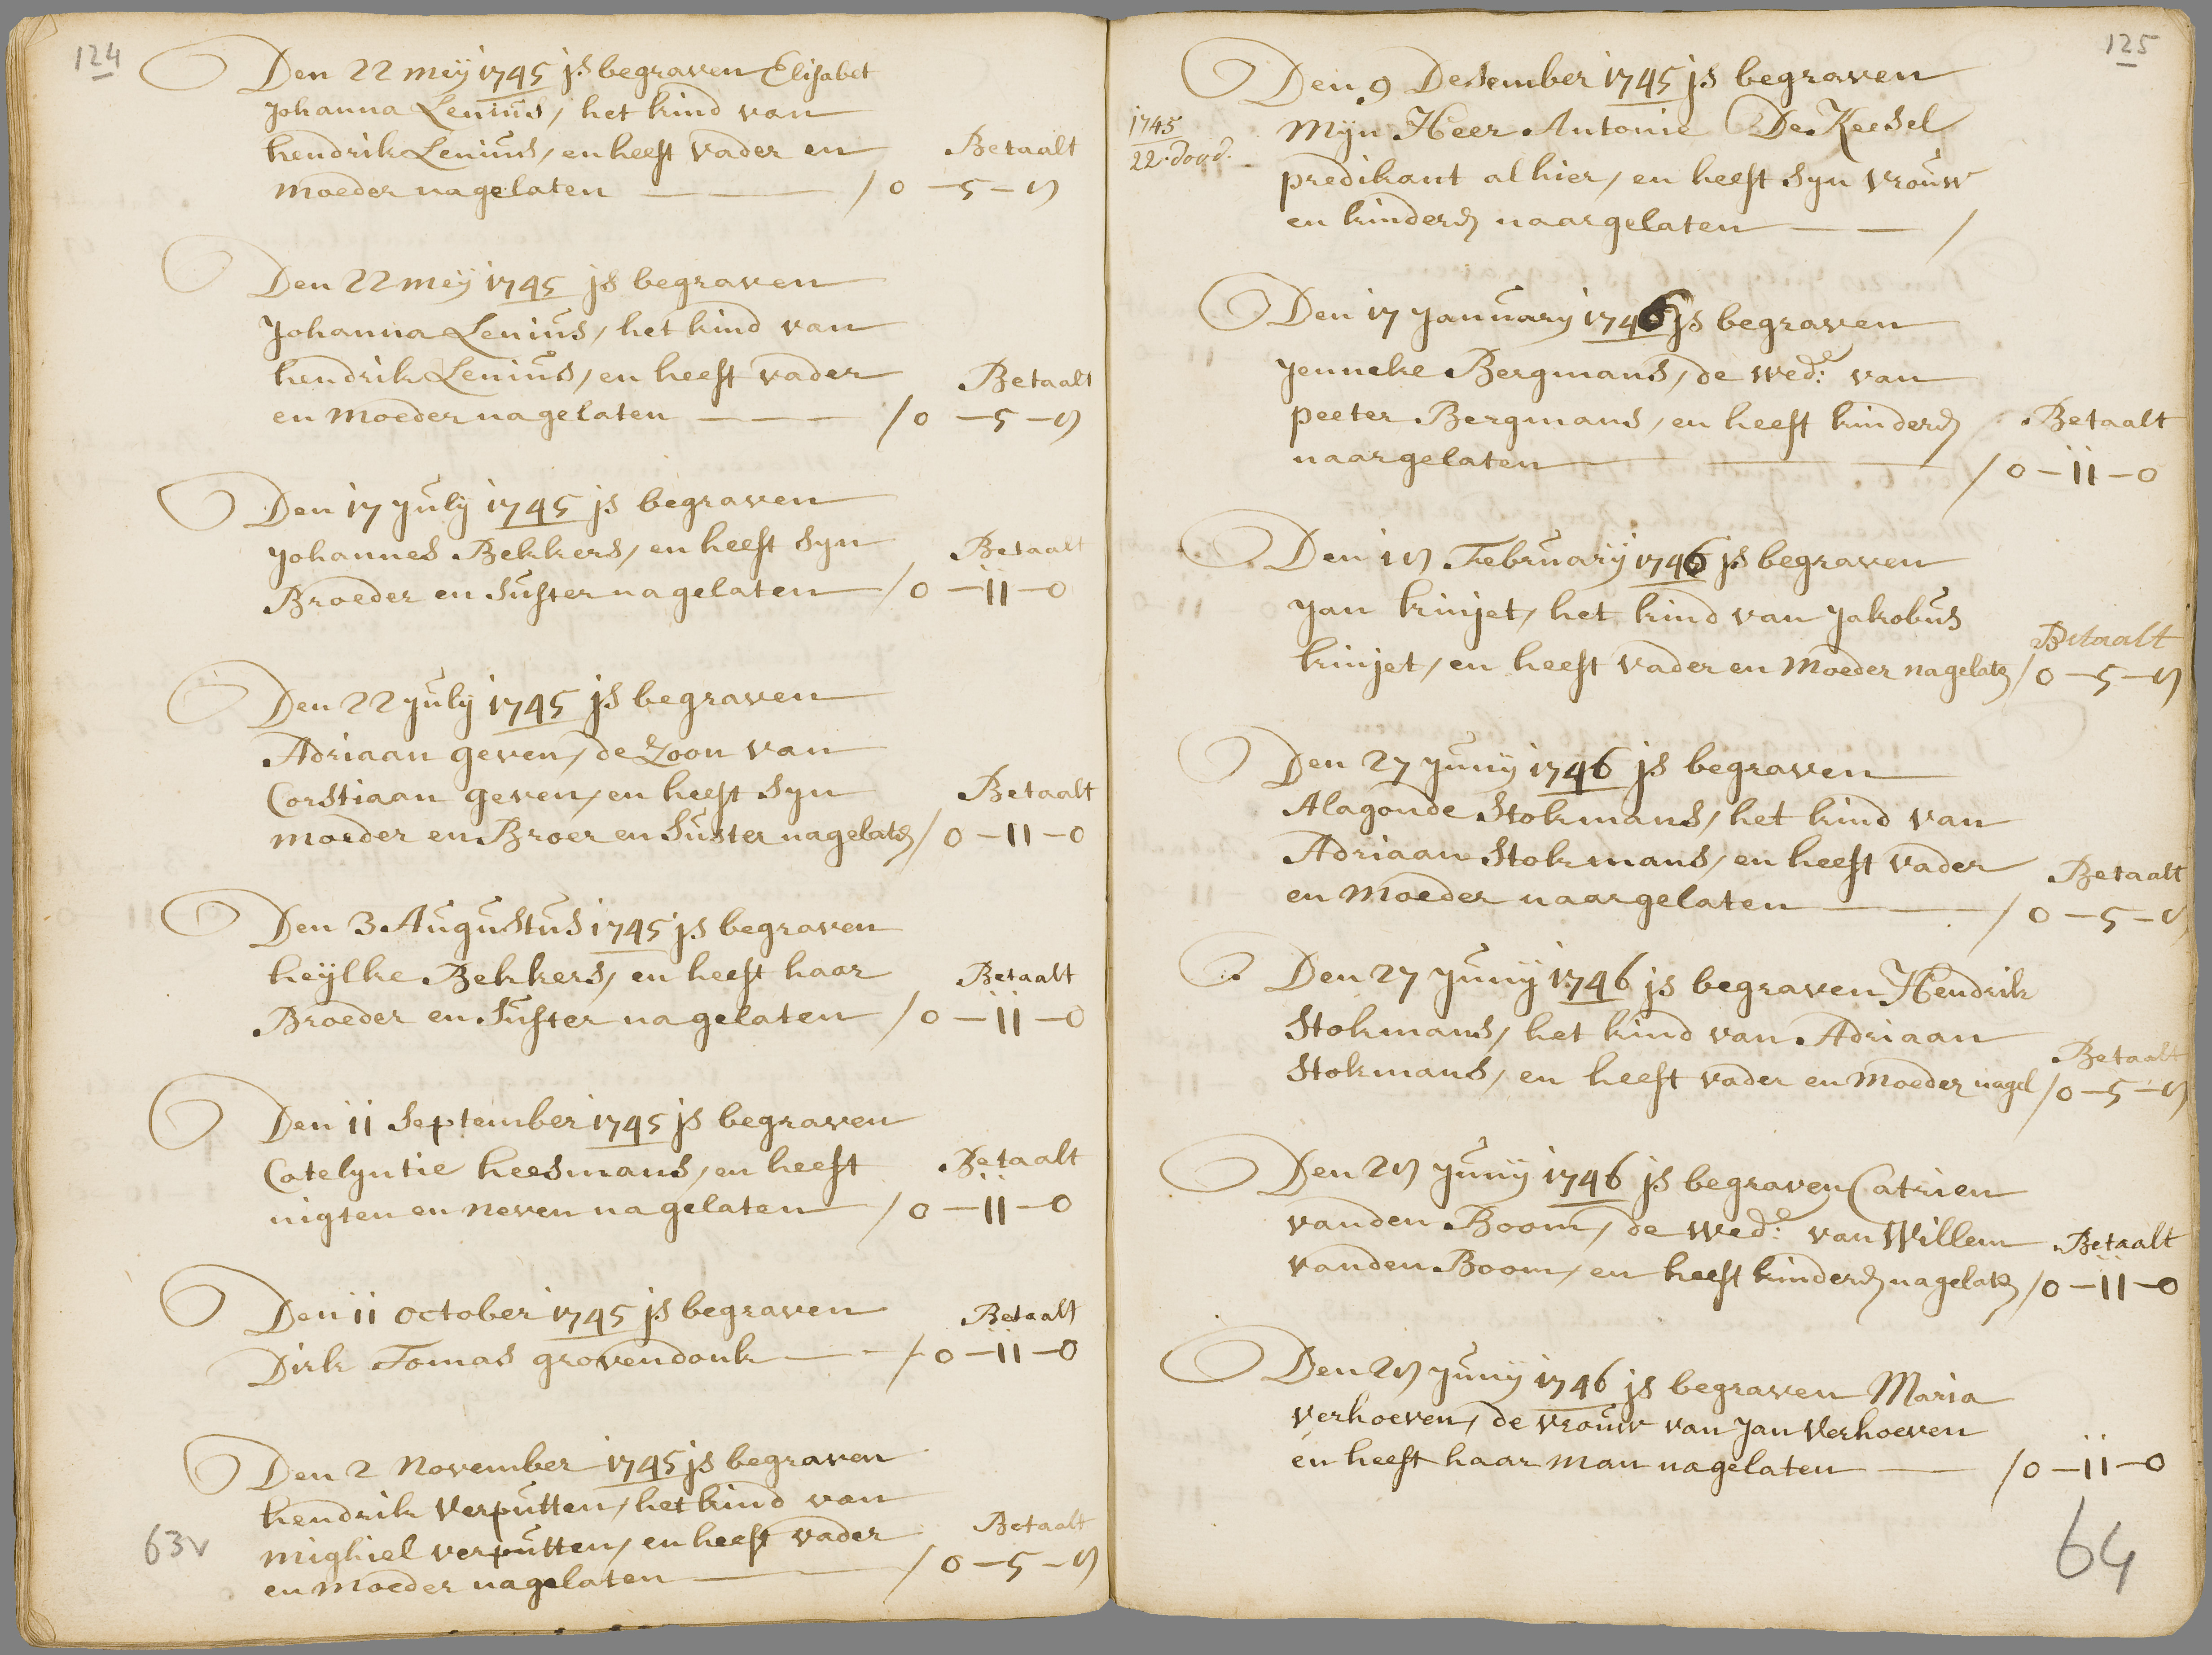 124
Den 22 meÿ 1745 js begraven Elisabet
Johanna Lenius, het kind van
hendrik Lenius, en heeft vader en Betaalt
moeder nagelaten / 0 - 5 - 8
Den 22 meÿ 1745 js begraven
Johanna Lenius, het kind van
hendrik Lenius, en heeft vader Betaalt
en moeder nagelaten / 0 - 5 - 8
Den 17 july 1745 js begraven
Johannes Bekkers, en heeft syn Betaalt
Broeder en Suster nagelaten / 0 - 11 - 0
Den 22 july 1745 js begraven
Adriaan geven, de Zoon van
Corstiaan geven, en heeft syn Betaalt
moeder en Broer en Suster nagelaten / 0 - 11 - 0
Den 3 Augustus 1745 js begraven
heÿlke Bekkers, en heeft haar Betaalt
Broeder en Suster nagelaten / 0 - 11 - 0
Den 11 September 1745 js begraven
Catelyntie heesmans, en heeft Betaalt
nigten en neven nagelaten / 0 - 11 - 0
Den 11 october 1745 js begraven Betaalt
Dirk Tomas grovendonk / 0 - 11 - 0
Den 2 November 1745 js begraven
hendrik Verputten, het kind van
mighiel verputten, en heeft vader Betaalt
en moeder nagelaten / 0 - 5 - 8
63v
125
Den 9 Desember 1745 js begraven
1745 Mijn Heer Antonie De Keesel
22. dood. predikant alhier, en heeft syn vrouw
en kinders naargelaten /
Den 17 january 1746 js begraven
Jenneke Bergmans, de wed:e van
peeter Bergmans, en heeft kinders Betaalt
naargelaten / 0 - 11 - 0
Den 18 Februarÿ 1746 js begraven
Jan kinjet, het kind van Jakobus Betaalt
kinjet, en heeft vader en moeder nagelat / 0 - 5 - 8
Den 27 Junÿ 1746 js begraven
Alagonde Stokmans, het kind van
Adriaan Stokmans, en heeft vader Betaalt
en moeder naargelaten / 0 - 5 - 8
Den 27 Junÿ 1746 js begraven Hendrik
Stokmans, het kind van Adriaan Betaalt
Stokmans, en heeft vader en moeder nagel / 0 - 5 - 8
Den 28 Junÿ 1746 js begraven Catrien
vanden Boom, de wed:e van Willem Betaalt
vanden Boom, en heeft kinders nagelat / 0 - 11 - 0
Den 28 Junÿ 1746 js begraven Maria
Verhoeven, de vrouw van Jan Verhoeven
en heeft haar man nagelaten / 0 - 11 - 0
64